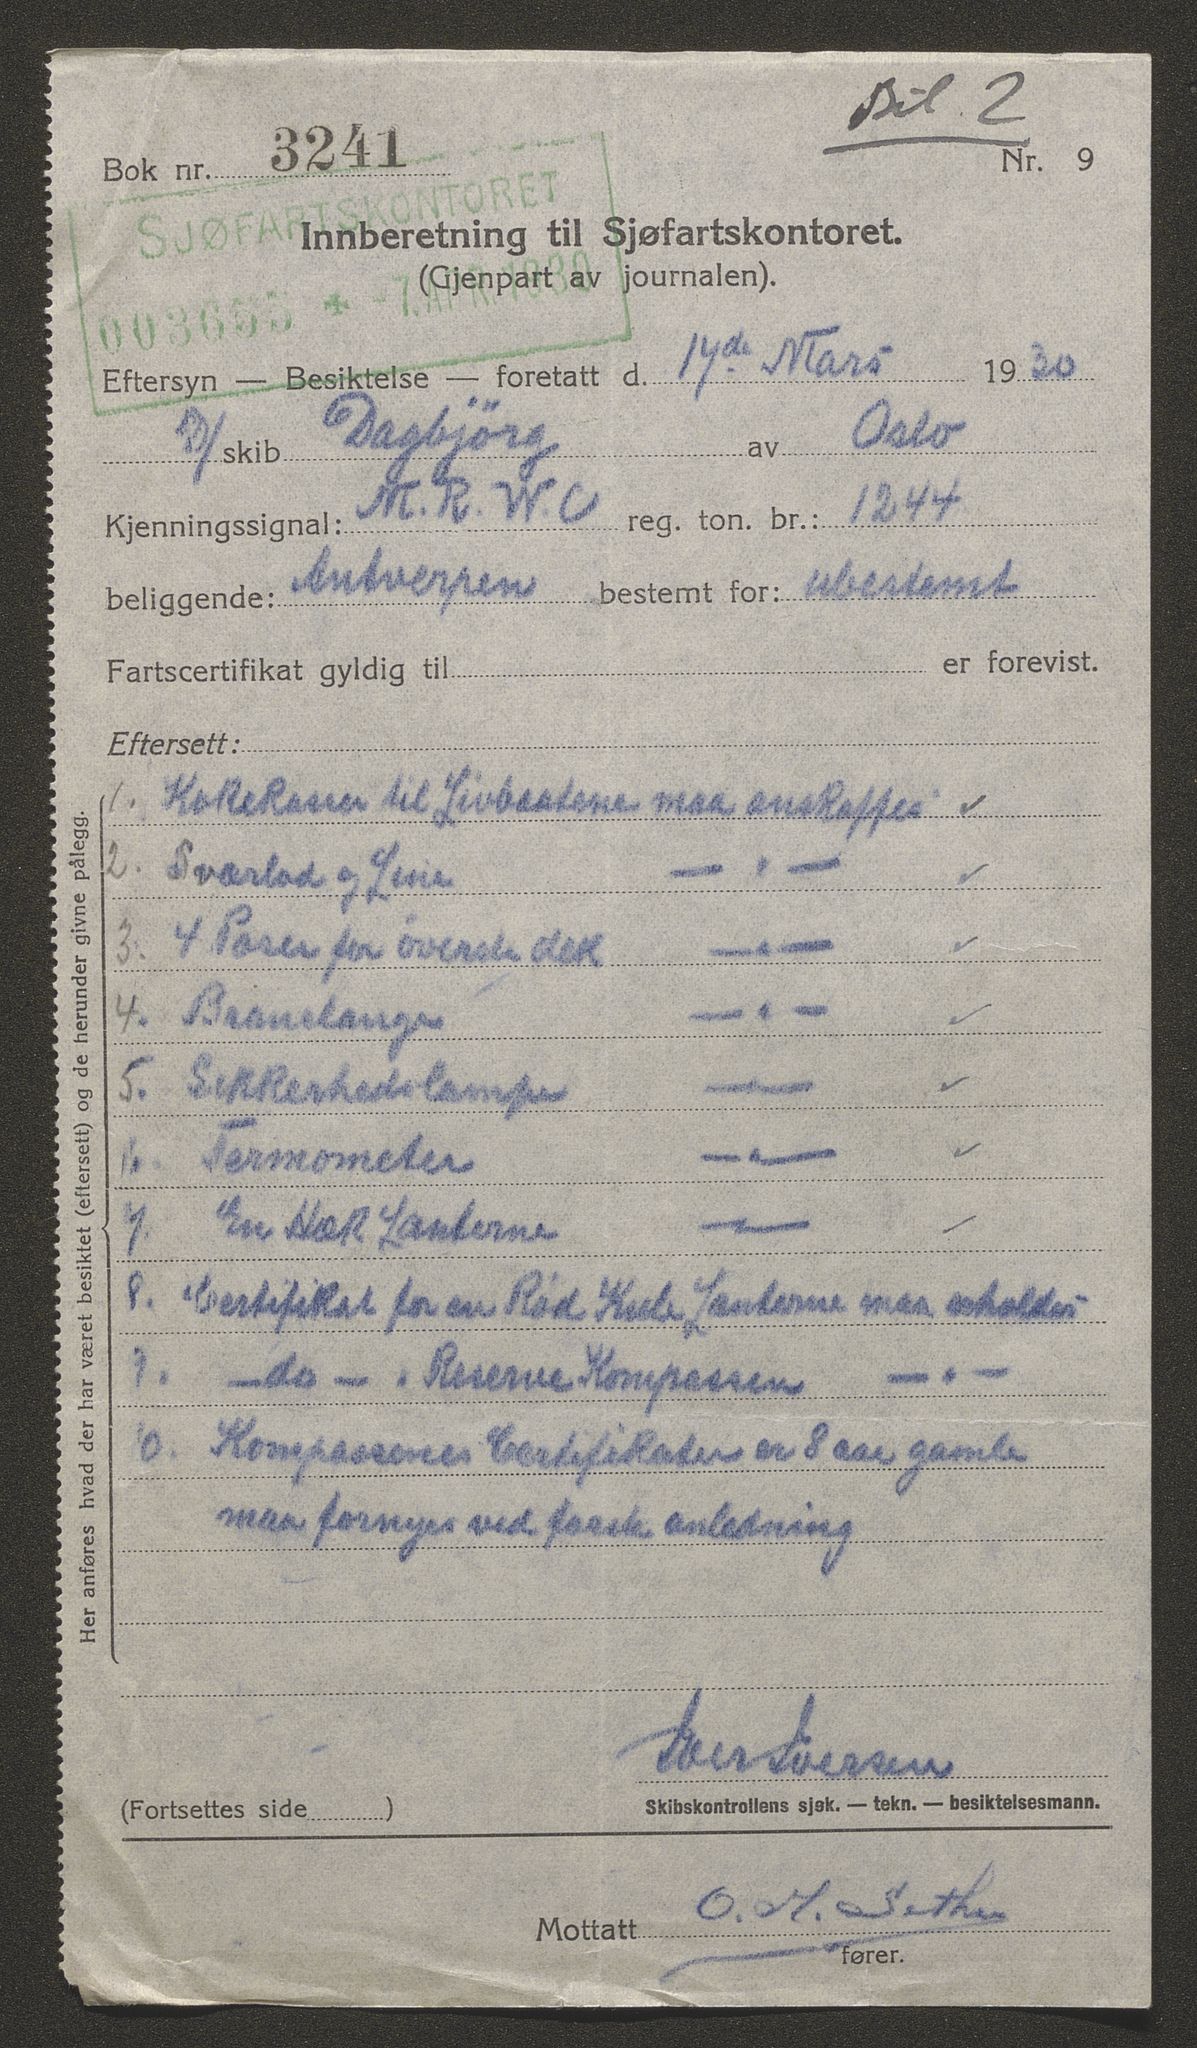 Bil. 2
Bok nr. 3241
Nr. 9
SJØFARTSKONTORET
003665 * -7.APR.1930
Innberetning til Sjøfartskontoret.
(Gjenpart av journalen).
Eftersyn — Besiktelse — foretatt d. 17de Mars 1930
D/ skib Dagbjörg av Oslo
Kjenningssignal: M.R.W.C reg. ton. br.: 1244
beliggende: Antverpen bestemt for: ubestemt
Fartscertifikat gyldig til er forevist.
Eftersett:
Her anføres hvad der har været besiktet (eftersett) og de herunder givne pålegg.
1. Kokekasser til Livbaatene maa anskaffes ✓
2. Sværlod og Line — " — ✓
3. 4 Pøser for överste dek — " — ✓
4. Branslange — " — ✓
5. Sikkerhedslampe — " — ✓
6. Termometer — " — ✓
7. En Hæk Lanterne — " — ✓
8. Certifikat for en Rød Kule Lanterne maa erholdes
9. — do — " Reserve Kompassen — " —
10. Kompassenes Certifikater er 8 aar gamle
maa fornyes ved første anledning
Iver Iversen
(Fortsettes side )
Skibskontrollens sjøk. — tekn. — besiktelsesmann.
Mottatt O. M. Sether
fører.